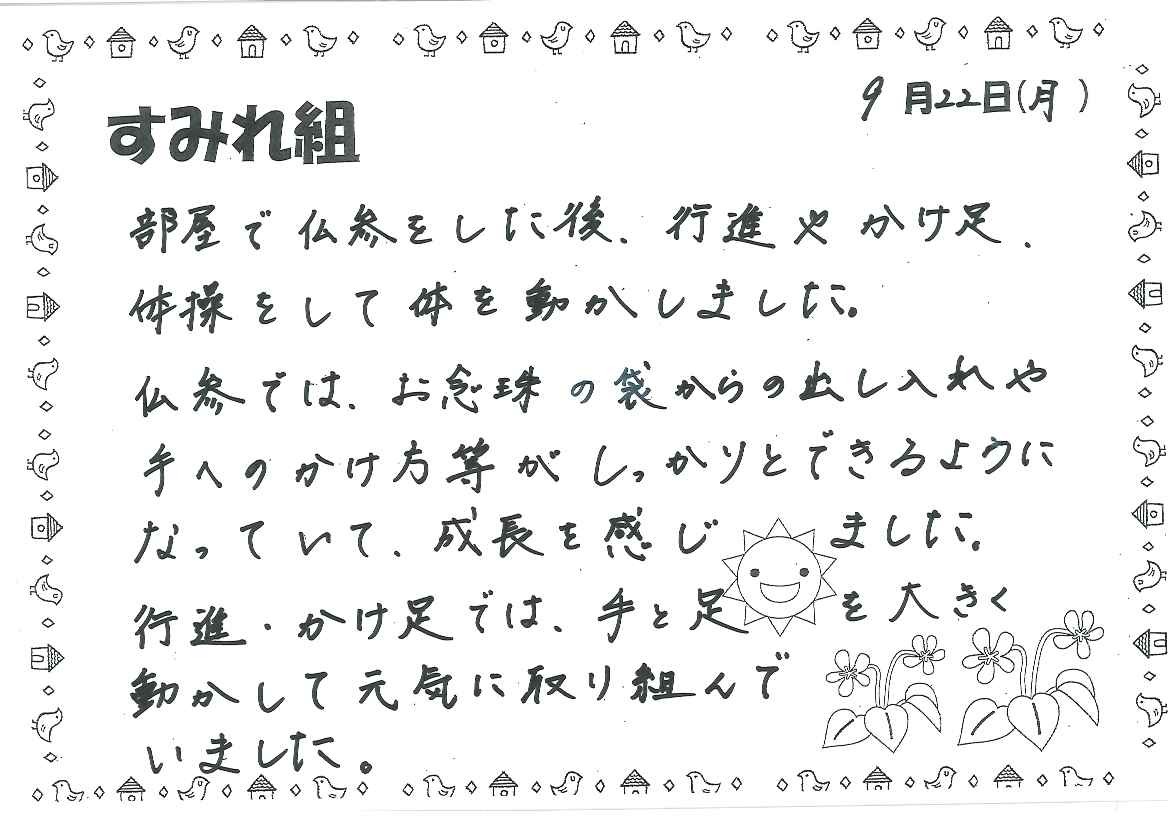 9月22日(月)
すみれ組
部屋で仏参をした後、行進やかけ足、
体操をして体を動かしました。
仏参では、お念珠の袋からの出し入れや
手へのかけ方等がしっかりとできるように
なっていて、成長を感じました。
行進・かけ足では、手と足を大きく
動かして元気に取り組んで
いました。